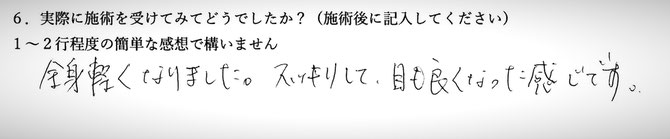 6．実際に施術を受けてみてどうでしたか？（施術後に記入してください）
1～2行程度の簡単な感想で構いません
全身軽くなりました。スッキリして、目も良くなった感じです。